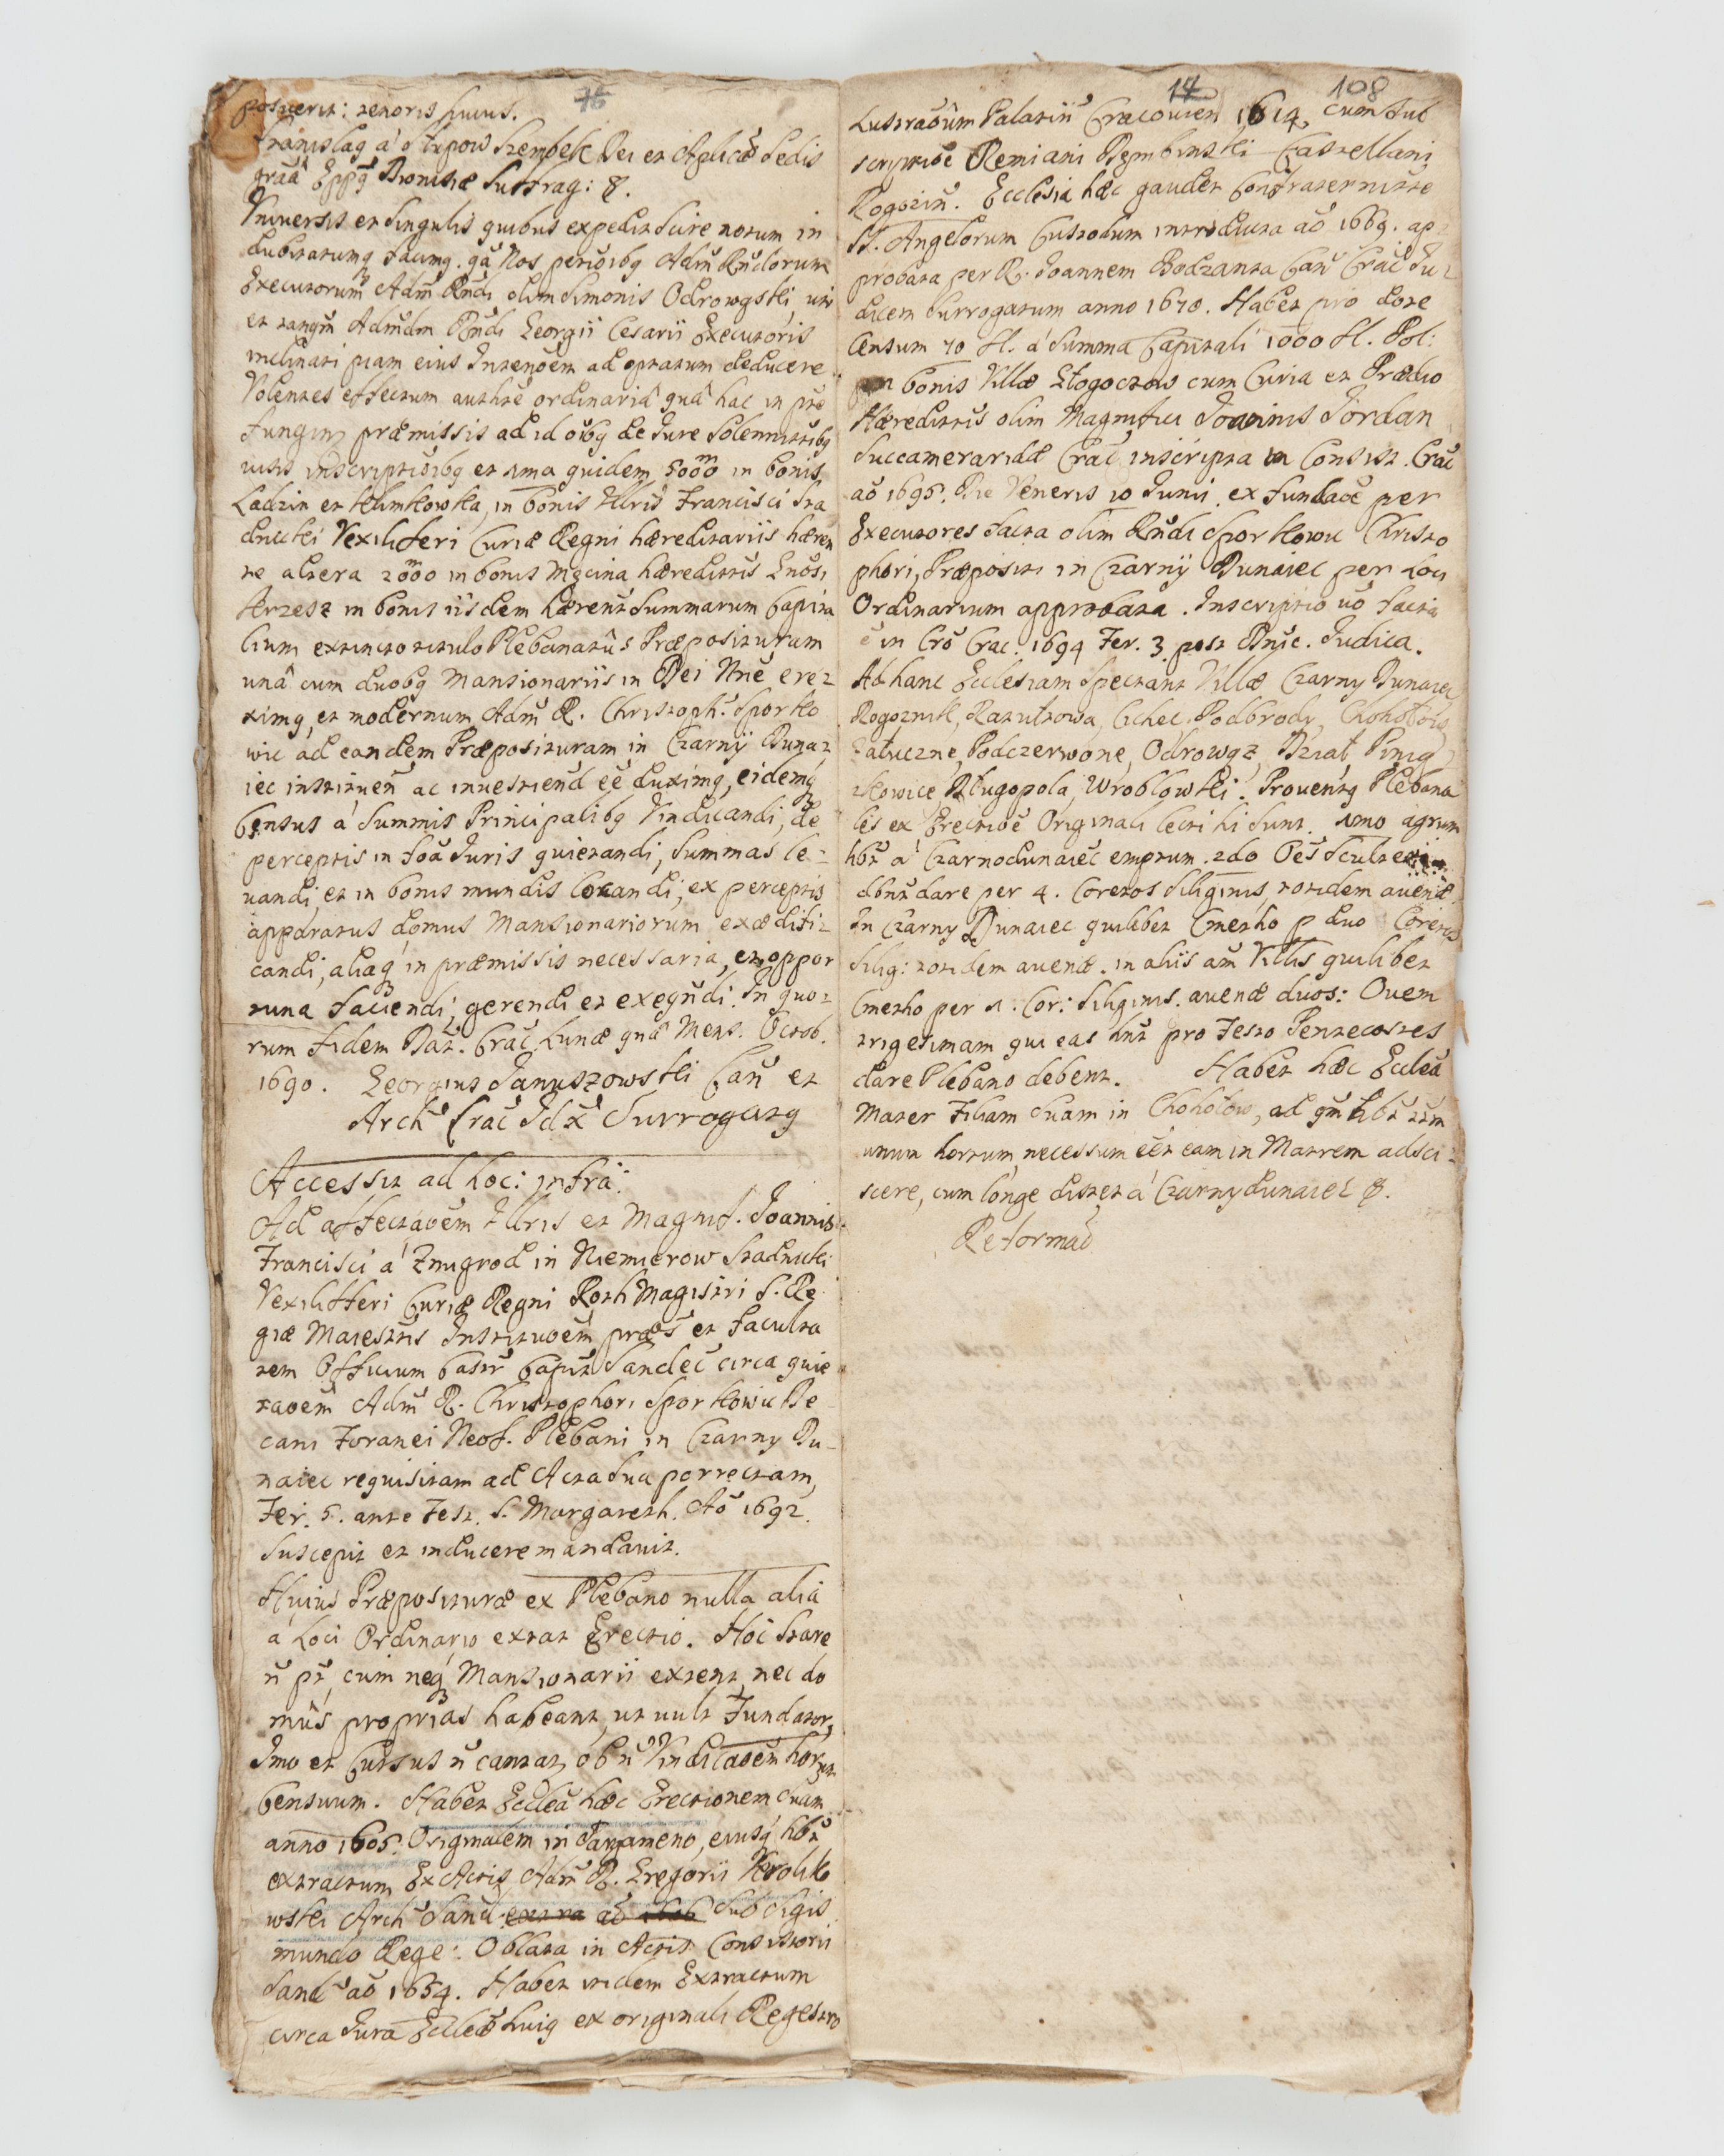 76
posuerit: tenoris huius.
Stanislaq à Slupow Szembek Dei et Aplicæ Sedis
grãa Eppq Dionisiæ Suffrag: &.
Vniversis et singulis quibus expedit scire notum in
dubitatumq facimq. qã Nos petitõibq Adm̃ Rñdorum
Executorum Adm̃ Rñdi olim Simonis Odrowąski, uti
et tanqm̃ Adm̃dm Rñdi Georgii Cesarii Executoris
inclinati piam eius Intenõem ad optatum deducere
Volentes effectum auth̃te ordinariâ quâ hac in pte
fungim̃ præmissis ad id oibq de Jure Solennittibq
uisis inscriptiõibq et 1ma quidem 5000 in bonis
Ladzin et Klimkowka, in bonis Illris Francisci Sta
dnicki Vexilliferi Curiæ Regni hæreditariis hæren
te altera 2000 in bonis Męcina hæredittis Gnosi
terzest in bonis iisdem hærent Summarum Capita
lium extincto titulo Plebanatûs Præposituram
unâ cum duobq Mansionariis in Dei Nñe ere-
ximq, et modernum Adm̃ R. Christoph. Sporko
wic ad eandem Præposituram in Czarny Duna-
iec instituen̄ ac inuestiend eẽ duximq, eidemq
Census à Summis Principalibq Vindicandi, de
perceptis in foã Juris quietandi, Summas le-
uandi, et in bonis mundis locandi; ex perceptis
apparatus domus Mansionariorum exædifi-
candi, aliaq in præmissis necessaria, et oppor
tuna faciendi, gerendi et exeqũdi. In quo-
rum fidem Dat. Crac̃. Lunæ quâ Mens. Octob.
1690. Georgius Januszowski Can̄ et
Arch̃ Crac̃ Jdx̃ Surrogatq
Accessit ad hoc: infrà:
Ad affectaõem Illris et Magnif. Joannis
Francisci à Zmigrod in Niemierow Stadnicki
Vexilliferi Curiæ Regni Roth Magistri S. Re
giæ Maiesttis Institutõem præs et faculta
tem Officium Castr̃ Capit̃ Sandec̃ circa quie
taõem Adm̃ R. Christophori Sporkowic De
cani Foranei Neof. Plebani in Czarny Du-
naiec requisitam ad Acta sua porrectam,
Fer. 5. ante Fest. S. Margareth. Aõ 1692.
Suscepit et inducere mandavit.
Huius Præposituræ ex Plebano nulla alia
a Loci Ordinario extat Erectio. Hoc stare
ñ pt, cum neq Mansionarii extent, nec do
mûs proprias habeant, ut uult Fundator,
Imo et Cursus ñ cantat, ob ñ Vindicaõem horum
Censuum. Habet Ecclea hæc Erectionem suam
anno 1605. Originalem in Pargameno, eiusq hbt
extractum Ex Actis Adm̃ R. Gregorii Krolik
wski Arch̃ Sand. sub Sigis
mundo Rege: Oblata in Actis Consistorii
Sand̃ aõ 1654. Habet itidem Extractum
circa Jura Eccleæ huiq ex originali Regestro
14 108
Lustraõum Palatin̄ Cracouien 1614, cum sub
scriptiõe Remiani Dembinski Castellani
Rogozin̄. Ecclesia hæc gaudet Confraternitte
St. Angelorum Custodum introducta aõ 1669. ap-
probata per R. Joannem Bodzanta Can̄ Crac̃ Ju-
dicem Surrogatum anno 1670. Habet pro dote
Censum 70 fl. à Summa Capitali 1000 fl. Pol:
in bonis Villæ Głogoczow cum Curia et Prædio
Hæredittis olim Magnifici Joannis Jordan
Succamerarida Crac̃ inscripta in Consist. Crac̃
aõ 1695. Die Veneris 10 Junii. ex fundaõe per
Executores facta olim Rñdi Sporkowic Christo
phori, Præpositi in Czarny Dunaiec per Loci
Ordinarium approbata. Inscriptio uõ facta
ẽ in Crõ Crac. 1694 Fer. 3. post Dñic. Judica.
Ad hanc Ecclesiam spectant Villæ Czarny Dunaiec
Rogoznik, Ratulowa, Ciche, Podbrody, Chohołow
Zaluczne, Podczerwone, Odrowąz, Dział, Pinią
zkowice, Długopola, Wroblowki. Prouentq Plebana
les ex Erectiõe Originali lecti hi sunt. 1mo agrum
hbt à Czarnodunaiec̃ emptum. 2do Oẽs Sculteti
dbnt dare per 4. Coretos Siliginis, totidem auenæ.
In Czarny Dunaiec quilibet Cmetho p duo Coretos
Silig: totidem auenæ. in aliis am̃ Villis quilibet
Cmetho per 1. Cor: Siliginis. auenæ duos: Ouem
trigesimam qui eas hnt pro Festo Pentecostes
dare Plebano debent. Habet hæc Ecclea
Mater Filiam suam in Chohołow, ad qm̃ hbt tm̃
unum hortum, necessum eẽt eam in Matrem adsci-
scere, cum longe distet à Czarny dunaiec &.
Reformad